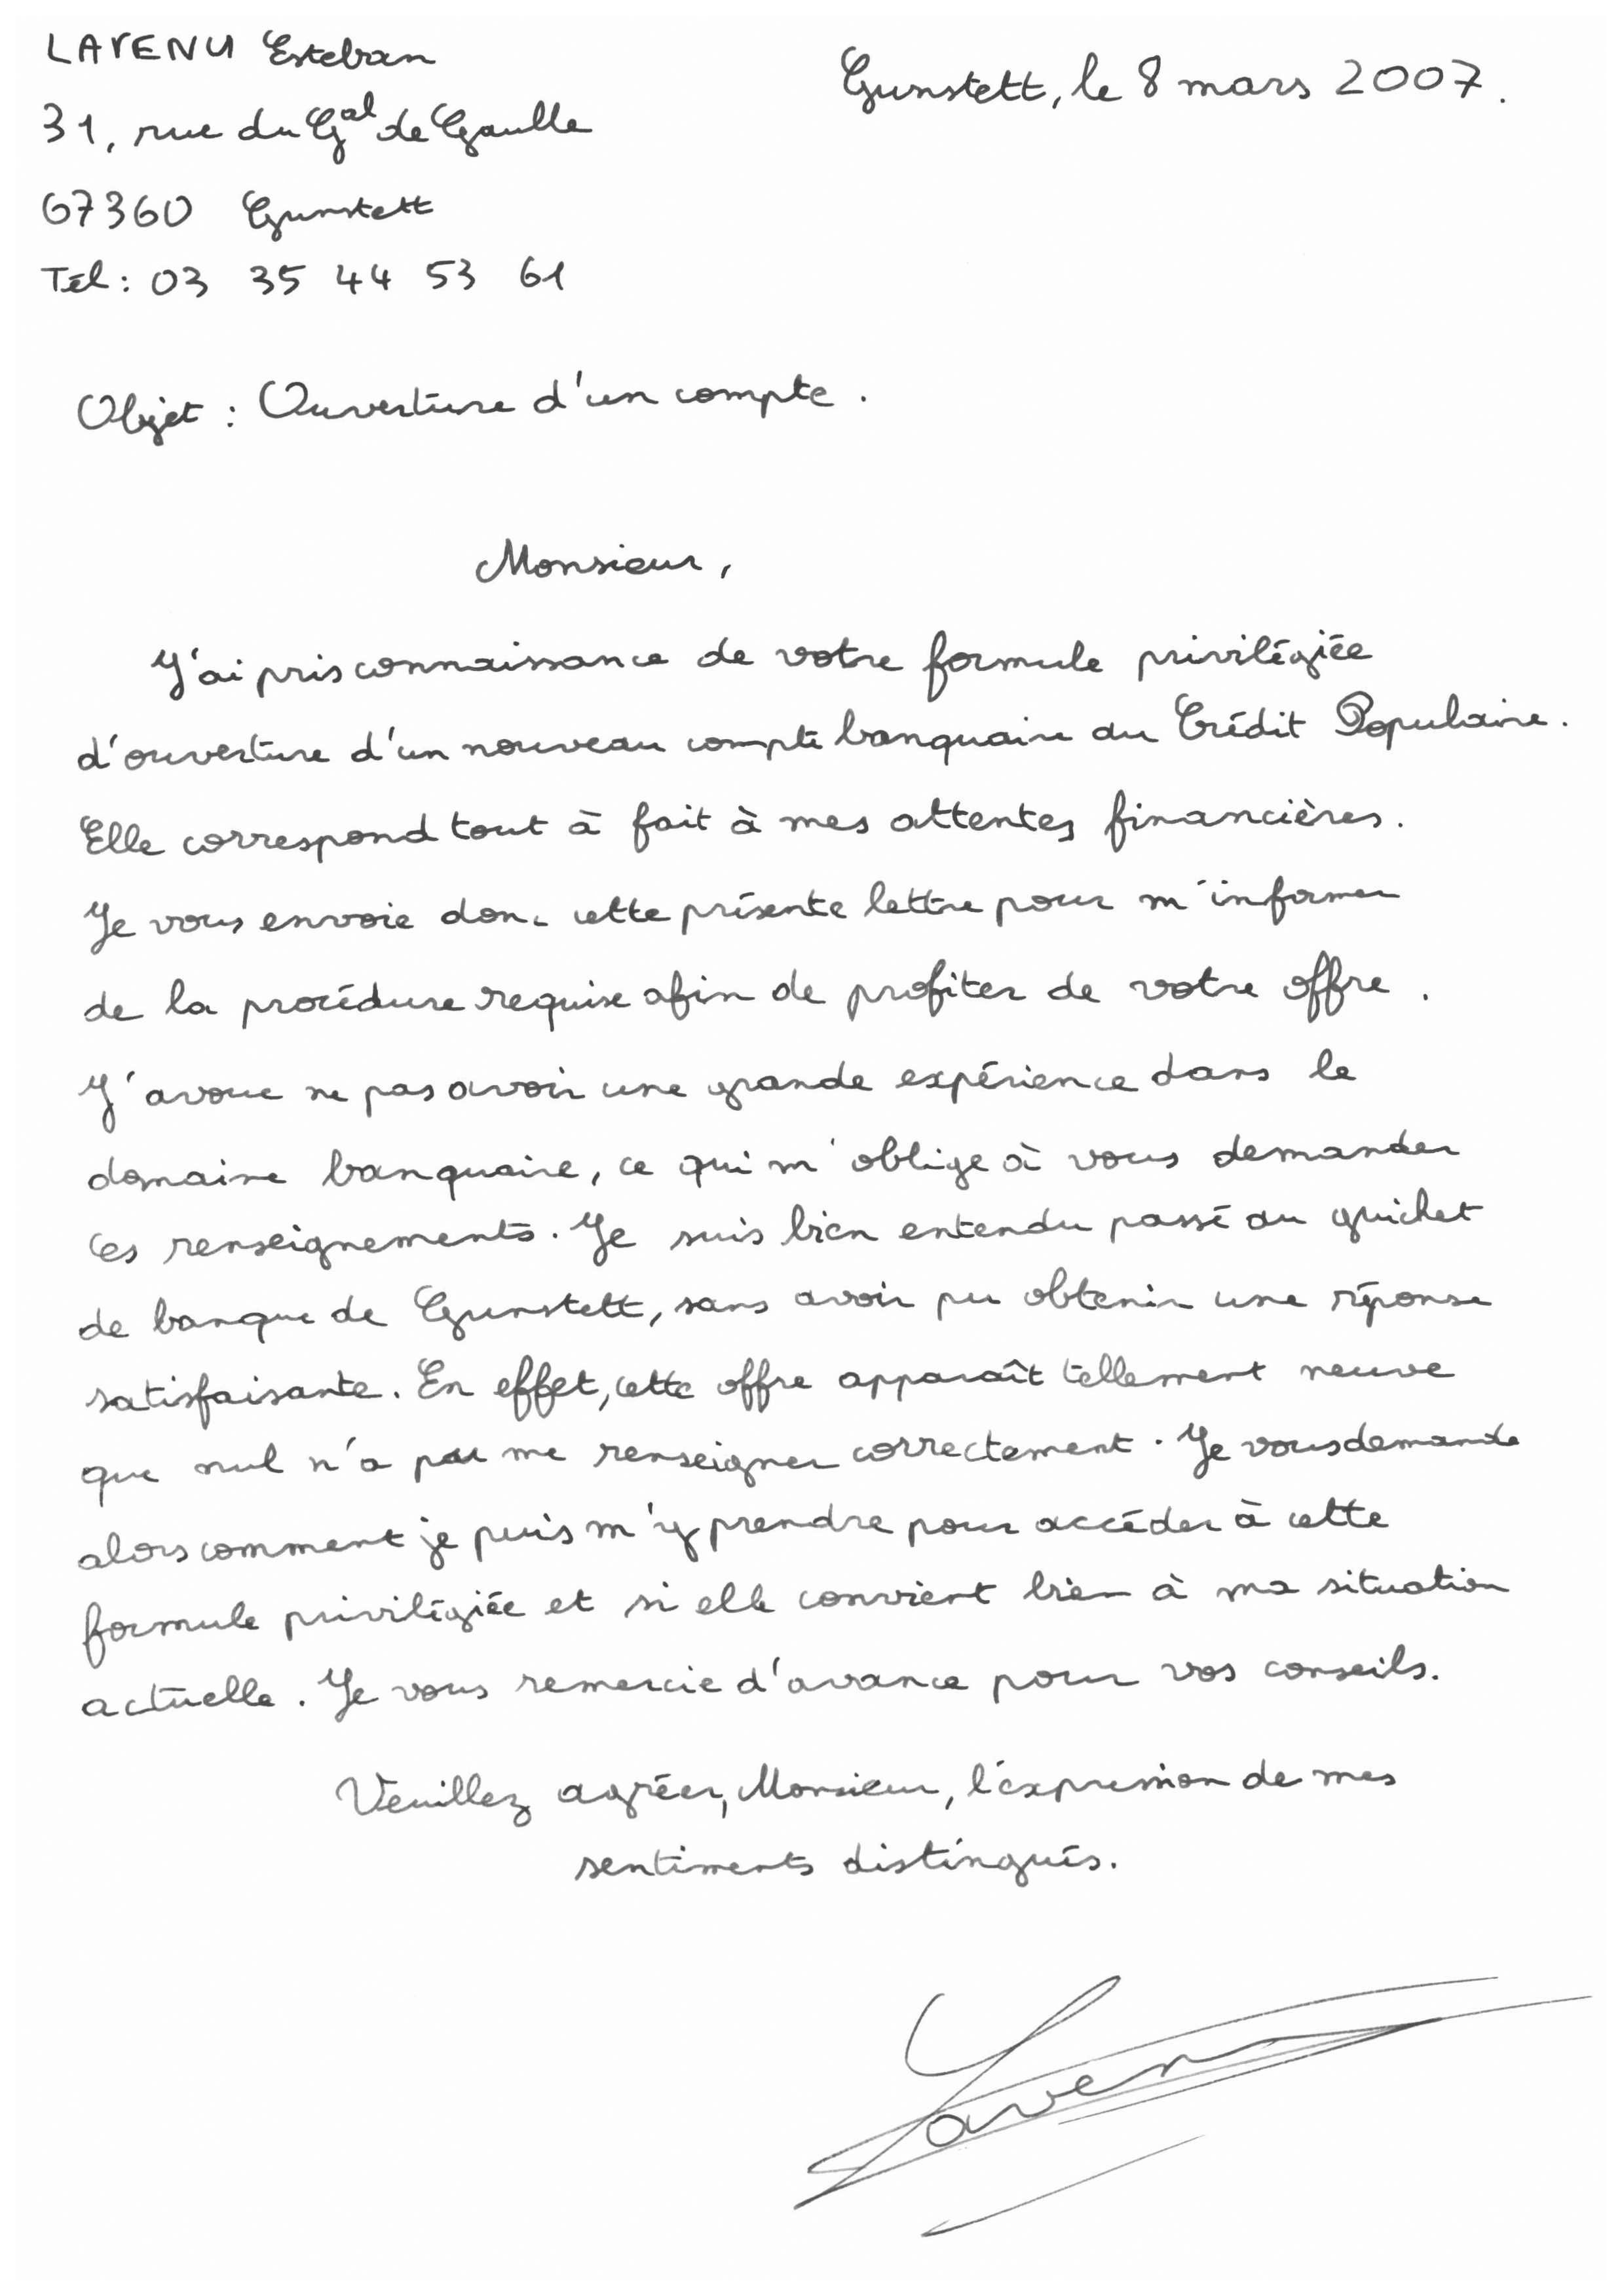 LAVENU Esteban
Gunstett, le 8 mars 2007.
31, rue du Gal de Gaulle
67360 Gunstett
Tél : 03 35 44 53 61
Objet : Ouverture d'un compte.
Monsieur,
J'ai pris connaissance de votre formule privilégiée
d'ouverture d'un nouveau compte banquaire au Crédit Populaire.
Elle correspond tout à fait à mes attentes financières.
Je vous envoie donc cette présente lettre pour m'informer
de la procédure requise afin de profiter de votre offre.
J'avoue ne pas avoir une grande expérience dans le
domaine banquaire, ce qui m'oblige à vous demander
ces renseignements. Je suis bien entendu passé au guichet
de banque de Gunstett, sans avoir pu obtenir une réponse
satisfaisante. En effet, cette offre apparaît tellement neuve
que nul n'a pu me renseigner correctement. Je vous demande
alors comment je puis m'y prendre pour accéder à cette
formule privilégiée et si elle convient bien à ma situation
actuelle. Je vous remercie d'avance pour vos conseils.
Veuillez agréer, Monsieur, l'expression de mes
sentiments distingués.
Lavenu